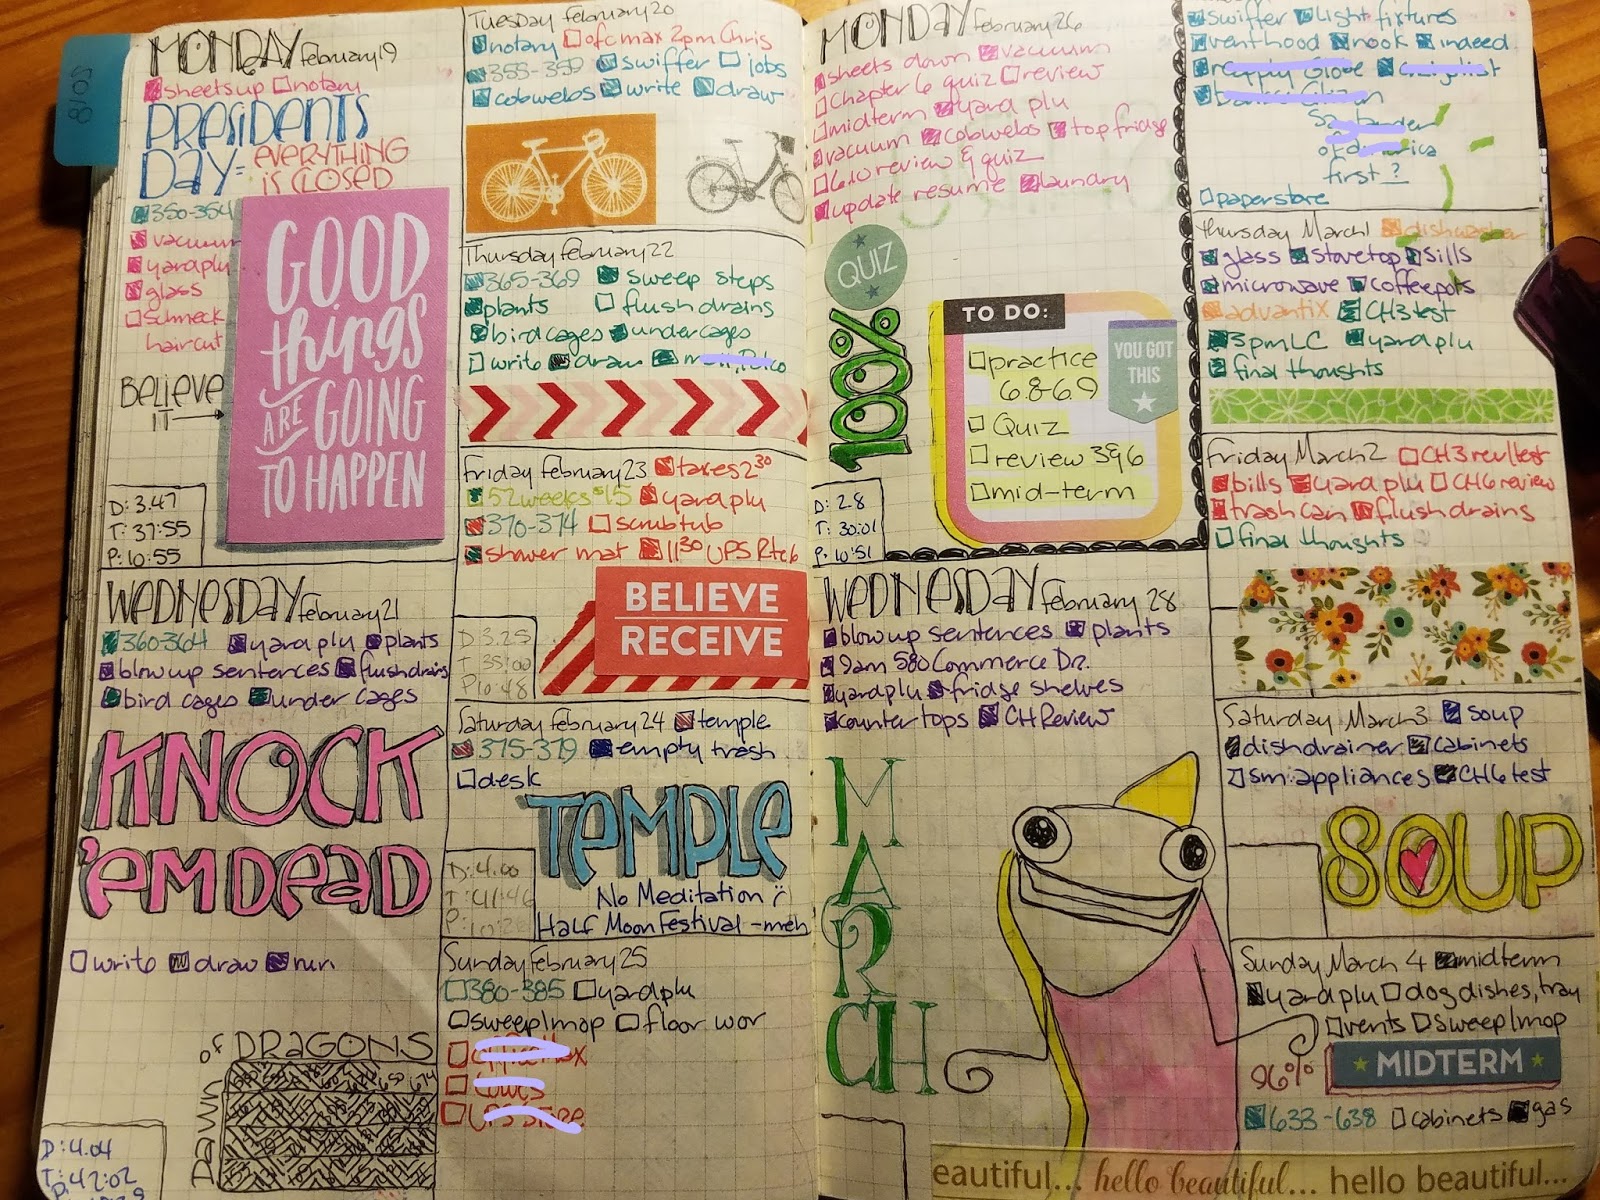 8102
MONDAY February 19
sheets up notary
PRESIDENTS
DAY = EVERYTHING
IS CLOSED
350-354
vacuum
yard plu
glass
Schneck
haircut
BELIEVE
IT
GOOD
things
ARE GOING
TO HAPPEN
D: 3.47
T: 37:55
P: 10:55
Tuesday February 20
notary ofcmax 2pm Chris
355-359 swiffer jobs
cobwebs write draw
WEDNESDAY February 21
360-364 yard plu plants
blow up sentences flush drains
bird cages under cages
KNOCK
'EM DEAD
write draw run
DAWN of DRAGONS
D: 4.04
T: 42:02
Thursday February 22
365-369 sweep steps
plants flush drains
bird cages under cages
write draw
Friday February 23 taxes 2 30
52 weeks $15 yard plu
370-374 scrub tub
shower mat 11 30 UPS Rte 6
BELIEVE
RECEIVE
D: 3.25
T: 35:00
P: 10:48
Saturday February 24 temple
375-379 empty trash
desk
TEMPLE
No Meditation
Half Moon Festival - meh
D: 4.00
T: 41:46
Sunday February 25
380-385 yard plu
sweep/mop floor wor
MONDAY February 26
sheets down vacuum
Chapter 6 quiz review
midterm yard plu
vacuum cobwebs top fridge
6.10 review & quiz
update resume laundry
QUIZ
100%
TO DO:
practice
6.8 & 6.9
Quiz
review 3 & 6
mid-term
YOU GOT
THIS
D: 2.8
T: 30:01
P: 10:51
swiffer light fixtures
vent hood nook indeed
first ?
paperstore
WEDNESDAY February 28
blow up sentences plants
9am 580 Commerce Dr.
yard plu fridge shelves
counter tops CH Review
MARCH
Thursday March 1 dishwasher
glass stovetop sills
microwave coffeepots
advantix CH3 test
3pm LC yard plu
final thoughts
Friday March 2 CH3 rev/test
bills yard plu CH6 review
trash can flush drains
final thoughts
Saturday March 3 soup
dish drainer cabinets
sm. appliances CH6 test
SOUP
Sunday March 4 midterm
yard plu dog dishes, tray
vents sweep/mop
96% MIDTERM
633-638 cabinets gas
eautiful... hello beautiful... hello beautiful...